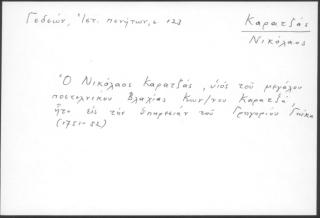 Γεδεών, Ἱστ. πενήτων, σ 123
Καρατζάς
Νικόλαος
Ὁ Νικόλαος Καρατζάς, υἱός τοῦ μεγάλου
ποστελνίκου Βλαχίας Κων/νου Καρατζᾶ
ἦτο εἰς τήν ὑπηρεσίαν τοῦ Γρηγορίου Γκίκα
(1751-52)